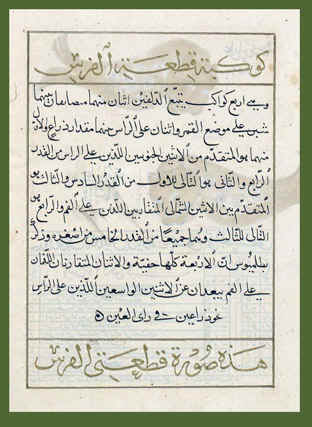 كوكبة قطعة الفرس
وهي اربع كواكب تتبع الدلفين اثنان منهما متضايقان بينهما
شبر على موضع الفم واثنان على الرأس بينهما مقدار ذراع والاول
منهما هو المتقدم من الاثنين الجنوبيين اللذين على الراس من القدر
الرابع والثاني هو التالي للاول من القدر السادس والثالث هو
المتقدم من الاثنين الشماليين المتقاربين اللذين على الفم والرابع هو
التالي للثالث وهما جميعا من القدر الخامس من اصغره وذكر
بطلميوس ان الاربعة كلها خفية والاثنان المتقاربان اللذان
على الفم يبعدان عن الاثنين الواسعين اللذين على الراس
نحو ذراعين في راي العين
هذه صورة قطعتي الفرس